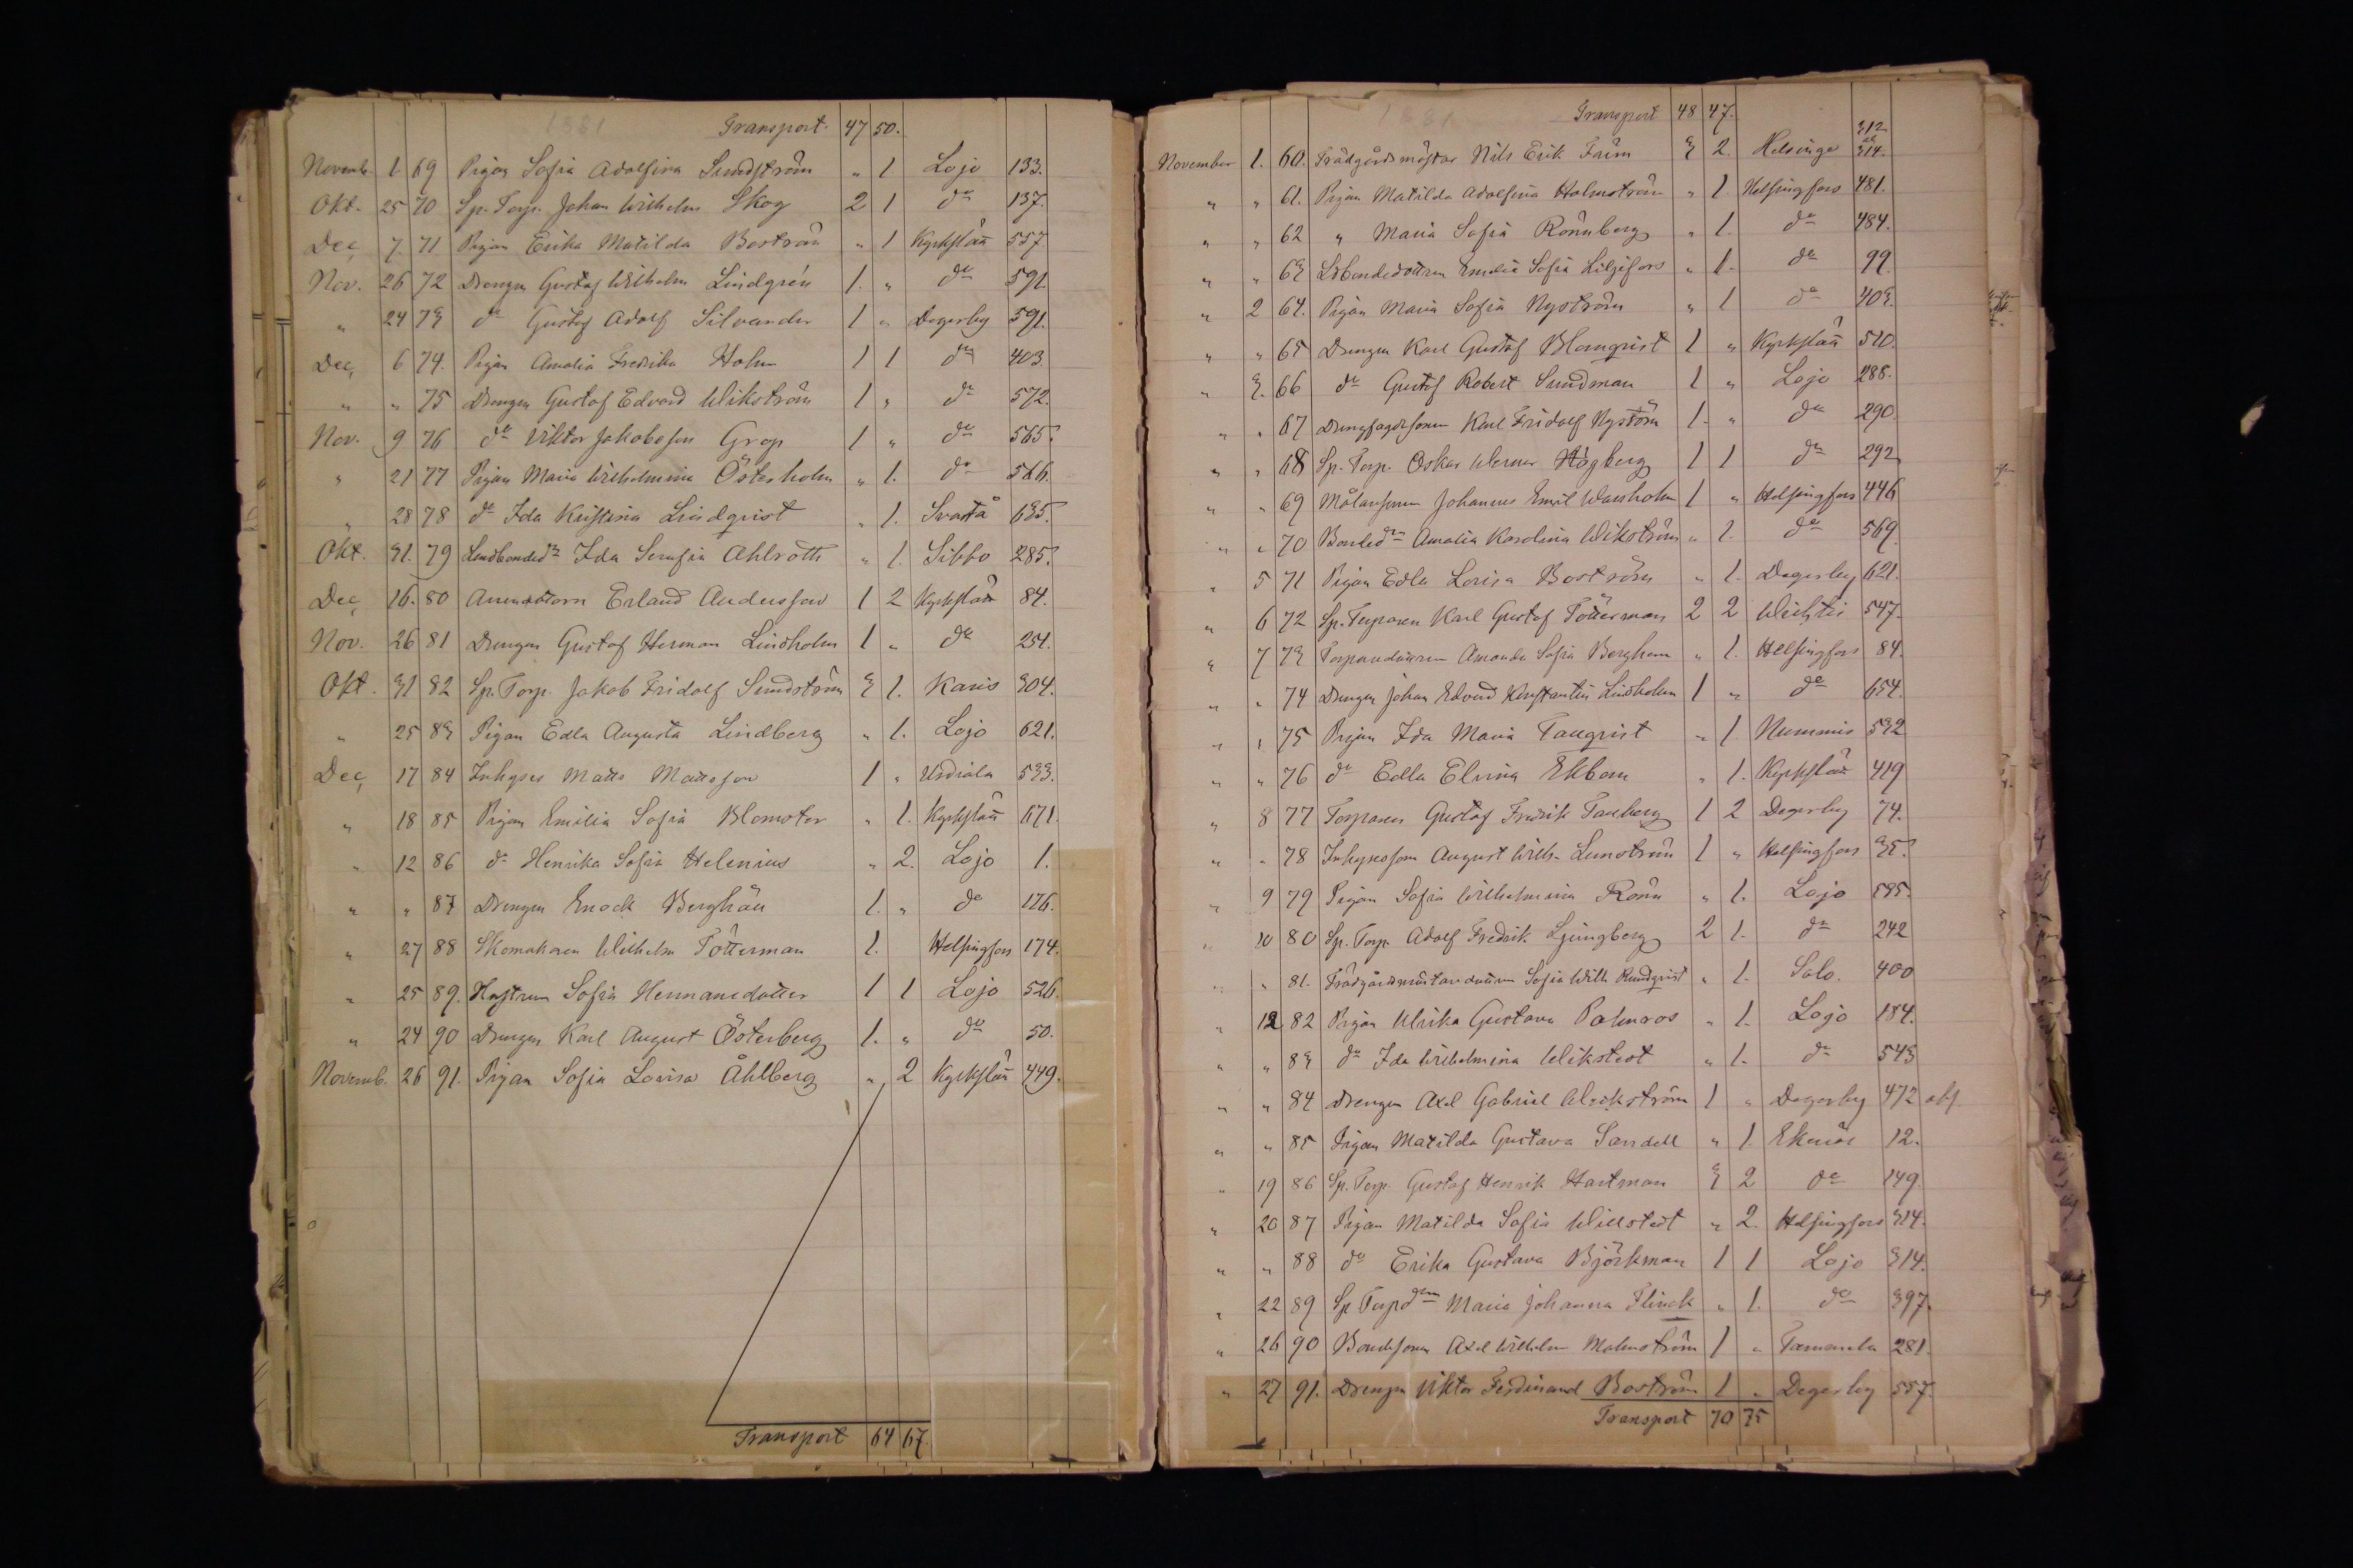 1881
Transport. 47 50.
Novemb. 1 69 Pigan Sofia Adolfina Sundström " 1 Lojo 133.
Okt. 25 70 Sp. Torp. Johan Wilhelm Skog 2 1 do 137.
Dec, 7. 71. Pigan Erika Matilda Boström " 1 Kyrkslätt 557
Nov. 26 72 Drengen Gustaf Wilhelm Lindgrén 1. " do 591
" 24 73 do Gustaf Adolf Silvander 1 " Degerby 591.
Dec, 6 74. Pigan Amalia Fredrika Holm 1 1 do 403
" " 75 Drengen Gustaf Edvard Wikström 1 " do 572.
Nov. 9 76 do Viktor Jakobsson Grop 1 " do 565.
" 21 77 Pigan Maria Wilhelmina Österholm " 1. do 566.
" 28 78 do Ida Kristina Lindqvist " 1. Svartå 635.
Okt. 31. 79 Landbonded:r Ida Serafia Ahlroth " 1. Sibbo 285.
Dec, 16. 80 Erland Andersson 1 2 Kyrkslätt 84.
Nov. 26 81 Drengen Gustaf Herman Lindholm 1 " do 254.
Okt. 31 82 Sp. Torp. Jakob Fridolf Sundström 3 1. Karis 304.
" 25 83 Pigan Edla Augusta Lindberg " 1. Lojo 621.
Dec, 17 84 Inhyses Matts Mattsson 1 " Urdiala 533.
" 18 85 Pigan Emilia Sofia Blomster " 1. Kyrkslätt 671.
" 12 86 do Henrika Sofia Helenius " 2. Lojo 1.
" " 87 Drengen Enock Berghäll 1. " do 176.
" 27 88 Skomakaren Wilhelm Tötterman 1. Helsingfors 174.
" 25 89. Hustrun Sofia Hermansdotter 1 1 Lojo 526.
" 24 90 Drengen Karl August Österberg 1. " do 50.
Novemb. 26 91. Pigan Sofia Lovisa Åhlberg " 2 Kyrkslätt 449.
Transport 64 67.
1881
Transport 48 47.
November 1. 60. Trädgårdsmästar Nils Erik Främ 3 2. Helsinge 312 & 314.
" " 61. Pigan Matilda Adolfina Holmström " 1. Helsingfors 481.
" " 62 " Maria Sofia Rönnberg " 1. do 484.
" " 63 Lbondedottren Emelie Sofia Liljefors " 1. do 99.
" 2 64. Pigan Maria Sofia Nyström " 1 do 403.
" " 65 Drengen Karl Gustaf Blomqvist 1 " Kyrkslätt 510.
" 3. 66 do Gustaf Robert Sundman 1 " Lojo 288.
" " 67 Karl Fridolf Nyström 1. " do 290.
" " 68 Sp. Torp. Oskar Werner Högberg 1 1 do 292
" " 69 Målaresonen Johannes Emil Wassholm 1 " Helsingfors 446
" " 70 Bonded:n Amalia Karolina Wikström " 1. do 569.
" 5 71 Pigan Edla Lovisa Boström " 1. Degerby 621.
" 6 72 Sp. Torparen Karl Gustaf Tötterman 2 2 Wichtis 547.
" 7 73 Torparedottren Amanda Sofia Berghem " 1. Helsingfors 84.
" " 74 Drengen Johan Edvard Konstantin Lindholm 1 " do 654.
" " 75 Pigan Ida Maria Tallqvist " 1 Nummis 532
" " 76 do Edla Elvina Ekbom " 1. Kyrkslätt 419
" 8 77 Torparen Gustaf Fredrik Taxberg 1 2 Degerby 74.
" " 78 Inhysessonen August Wilh. Lunström 1 " Helsingfors 35.
" 9 79 Pigan Sofia Wilhelmina Rönn " 1. Lojo 585.
" 10 80 Sp. Torp. Adolf Fredrik Ljungberg 2 1. do 242
" " 81. Trädgårdsmästaredottren Sofia Wilh. Rundqvist " 1. Salo. 400
" 12 82 Pigan Ulrika Gustava Palmros " 1. Lojo 184.
" " 83 do Ida Wilhelmina Wikstedt " 1. do 543
" " 84 Drengen Axel Gabriel Weckström 1 " Degerby 472
" " 85 Pigan Matilda Gustava Sandell " 1. Ekenäs 12.
" 19 86 Sp. Torp. Gustaf Henrik Hartman 3 2 do 149.
" 20 87 Pigan Matilda Sofia Willstedt " 2. Helsingfors 314.
" " 88 do Erika Gustava Björkman 1 1 Lojo 314.
" 22 89 Sp. Torpd:en Maria Johanna Flinck " 1. do 397.
" 26 90 Bondesonen Axel Wilhelm Malmström 1 " Tammela 281.
" 27 91. Drengen Viktor Ferdinand Boström 1 " Degerby 557.
Transport 70 75